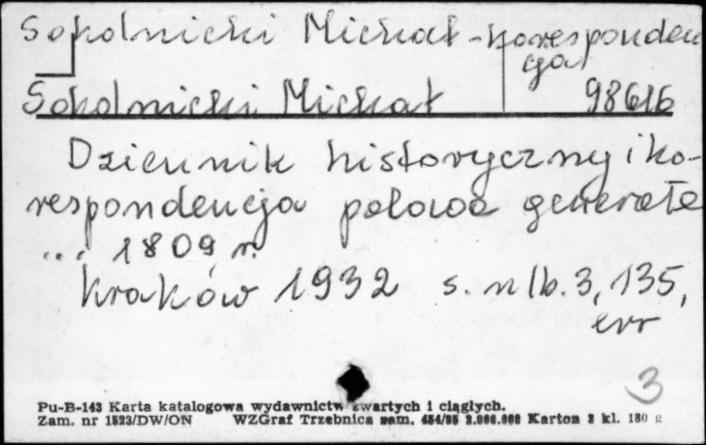 Sokolnicki Michał - koresponden
cja
Sokolnicki Michał 98616
Dziennik historyczny i ko-
respondencja polowa generała
... 1809 r.
Kraków 1932 s. nlb. 3, 135,
err
3
Pu-B-143 Karta katalogowa wydawnictw zwartych i ciągłych.
Zam. nr 1523/DW/ON WZGraf Trzebnica zam. 454/85 2.000.000 Karton 2 kl. 180 g